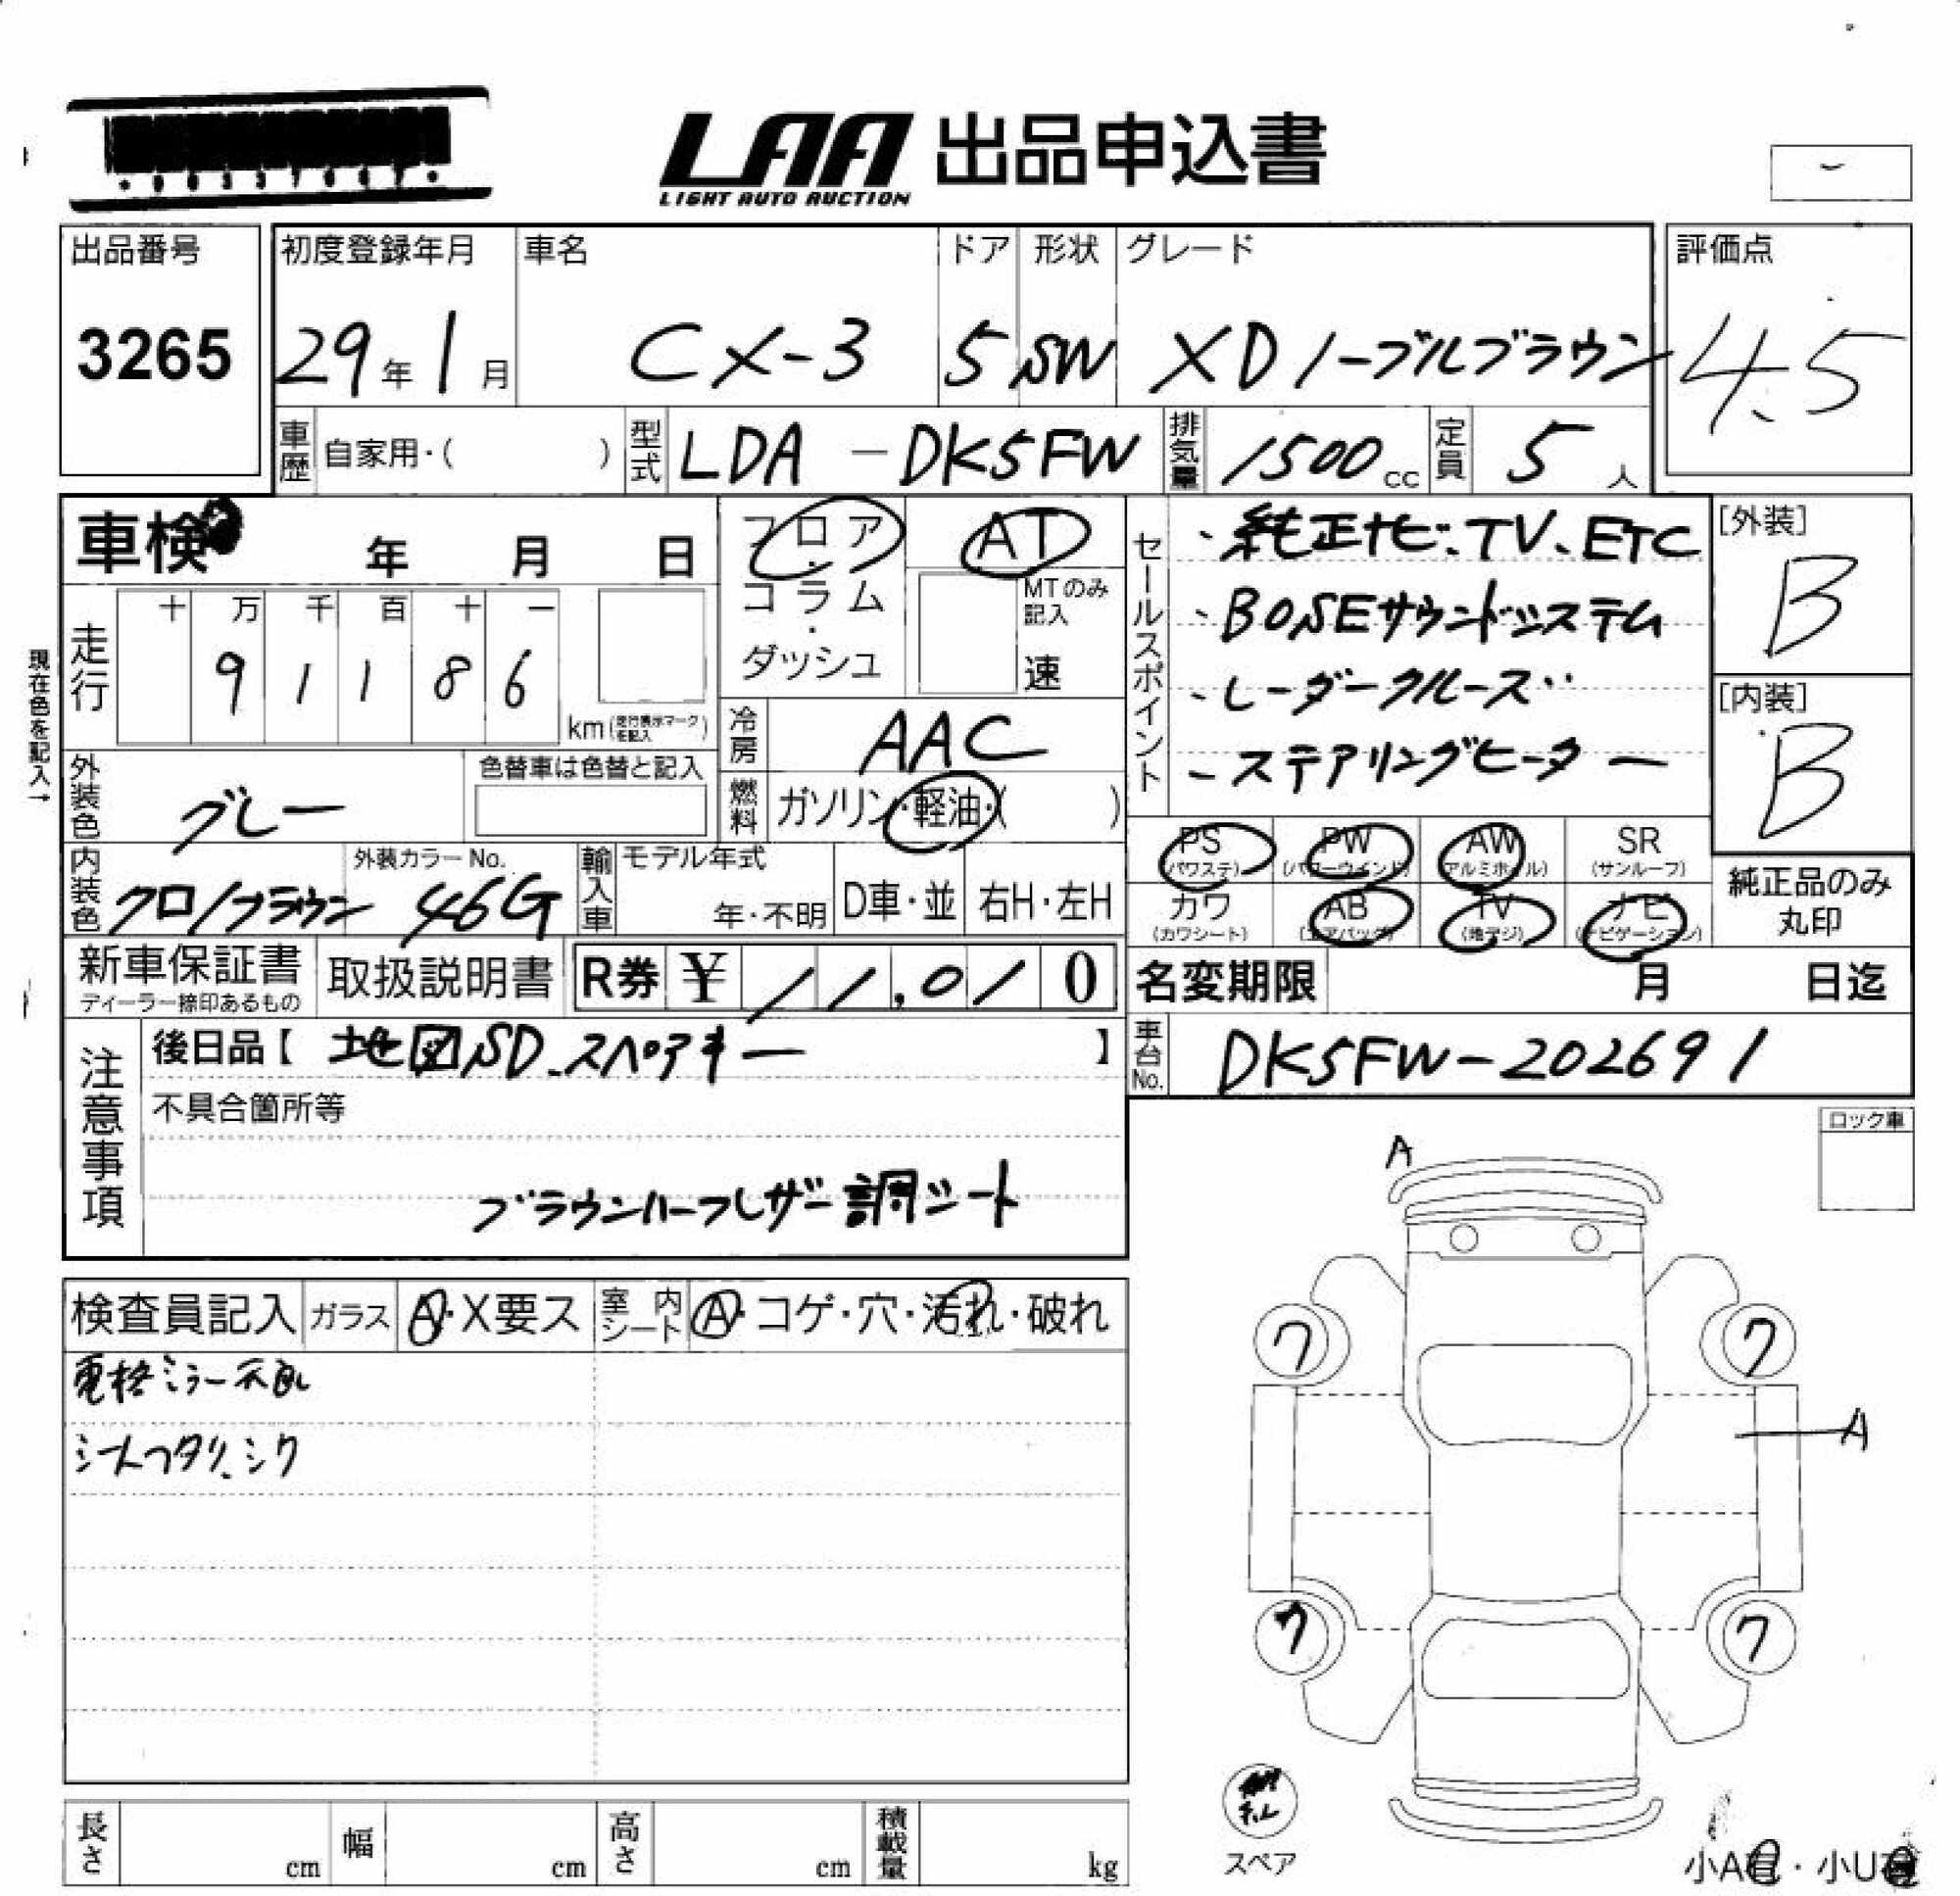 LAA 出品申込書
LIGHT AUTO AUCTION
出品番号
3265
初度登録年月
29年1月
車名
CX-3
ドア
5
形状
SW
グレード
XD ノーブルブラウン
評価点
4.5
車歴 自家用・( )
型式 LDA-DK5FW
排気量 1500cc
定員 5人
車検 年 月 日
フロア・コラム・ダッシュ
AT
MTのみ記入
速
セールスポイント
・純正ナビ、TV、ETC
・BOSEサウンドシステム
-レーダークルーズ
-ステアリングヒーター
[外装]
B
[内装]
B
現在色を記入→
走行
十 万 千 百 十 一
9 1 1 8 6
km(走行表示マークを記入)
冷房 AAC
燃料 ガソリン・軽油・( )
外装色 グレー
色替車は色替と記入
内装色 クロ/ブラウン
外装カラーNo. 46G
輸入車
モデル年式 年・不明
D車・並
右H・左H
PS(パワステ) PW(パワーウインド) AW(アルミホイル) SR(サンルーフ)
カワ(カワシート) AB(エアバッグ) TV(地デジ) ナビ(ナビゲーション)
純正品のみ丸印
新車保証書
ディーラー捺印あるもの
取扱説明書
R券 ¥11,010
名変期限 月 日迄
車台No. DK5FW-202691
注意事項
後日品【地図SD、スペアキー】
不具合箇所等
ブラウンハーフレザー調シート
ロック車
検査員記入
ガラス A・X要ス
室内シート A・コゲ・穴・汚れ・破れ
電格ミラー不良
シートヘタリ、シワ
A
ワ
ワ
A
ワ
ワ
スペア
長さ cm
幅 cm
高さ cm
積載量 kg
小A・小U